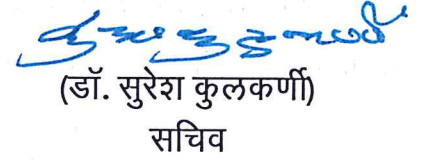 (डॉ. सुरेश कुलकर्णी)
सचिव